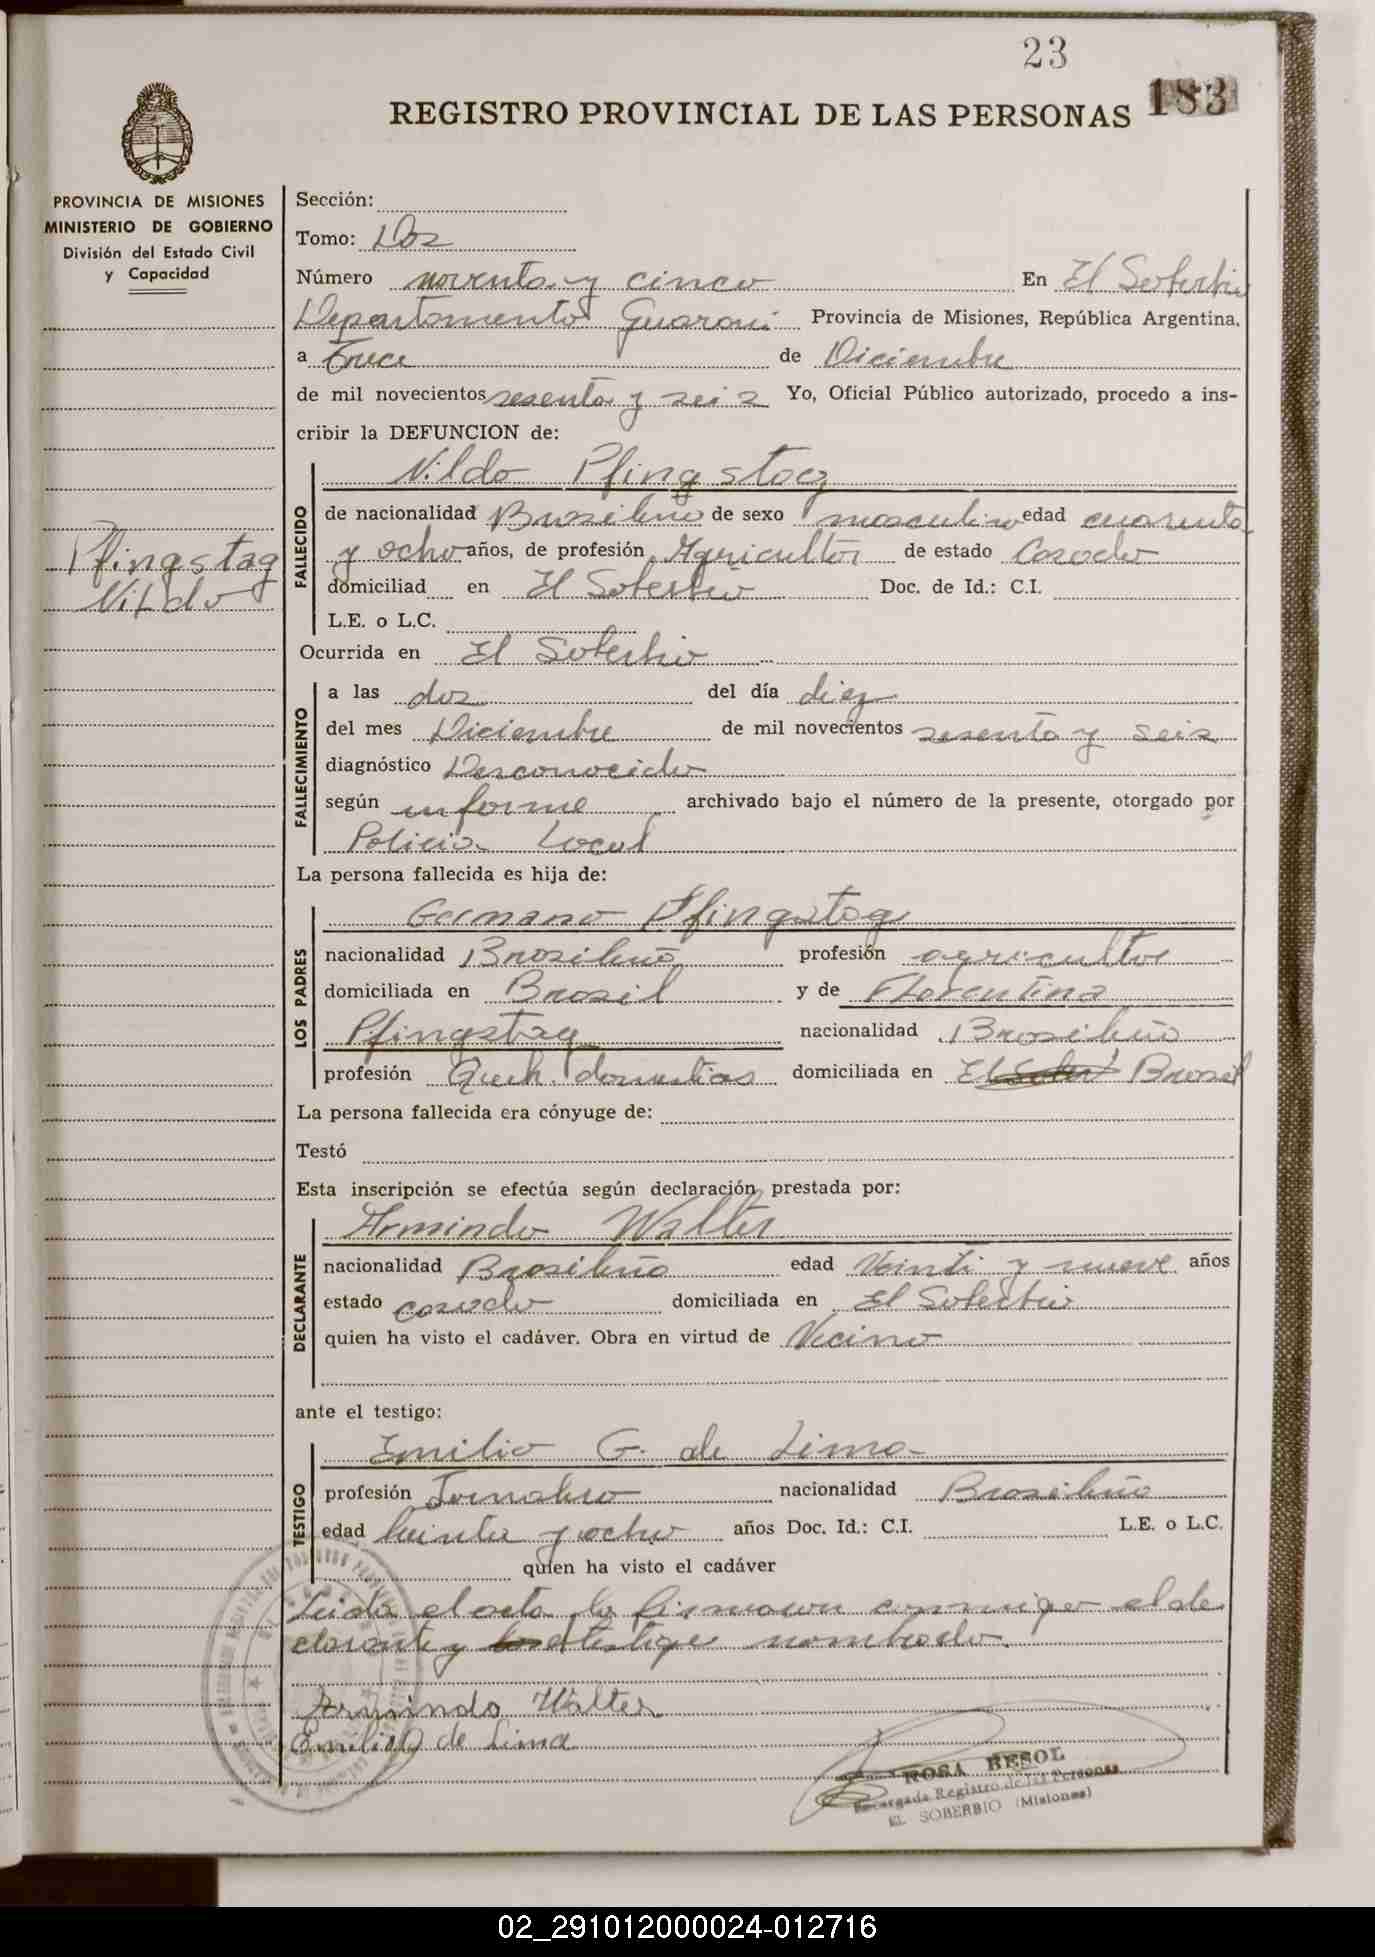 23
183
REGISTRO PROVINCIAL DE LAS PERSONAS
PROVINCIA DE MISIONES
MINISTERIO DE GOBIERNO
División del Estado Civil
y Capacidad
Sección:
Tomo: Dos
Número noventa y cinco En El Soberbio
Departamento Guarani Provincia de Misiones, República Argentina,
a Trece de Diciembre
de mil novecientos sesenta y seis Yo, Oficial Público autorizado, procedo a ins-
cribir la DEFUNCION de:
Pfingstag
Nildo
FALLECIDO
Nildo Pfingstag
de nacionalidad Brasileño de sexo masculino edad cuarenta
y ocho años, de profesión Agricultor de estado Casado
domiciliad en El Soberbio Doc. de Id.: C.I.
L.E. o L.C.
Ocurrida en El Soberbio
FALLECIMIENTO
a las dos del día diez
del mes Diciembre de mil novecientos sesenta y seis
diagnóstico Desconocido
según informe archivado bajo el número de la presente, otorgado por
Policia Local
La persona fallecida es hija de:
LOS PADRES
Germano Pfingstag
nacionalidad Brasileño profesión agricultor
domiciliada en Brasil y de Florentina
Pfingstag nacionalidad Brasileña
profesión Queh. domesticos domiciliada en Brasil
La persona fallecida era cónyuge de:
Testó
Esta inscripción se efectúa según declaración prestada por:
DECLARANTE
Armindo Walter
nacionalidad Brasileño edad Veinti y nueve años
estado casado domiciliada en El Soberbio
quien ha visto el cadáver. Obra en virtud de Vecino
ante el testigo:
TESTIGO
Emilio G. de Lima
profesión Jornalero nacionalidad Brasileño
edad y ocho años Doc. Id.: C.I. L.E. o L.C.
quien ha visto el cadáver
Leida el acta la firmaron conmigo el de
clarante y el testigo nombrado.
Armindo Walter
Emilio G de Lima
ROSA BESOL
Encargada Registro de las Personas
EL SOBERBIO (Misiones)
02_291012000024-012716